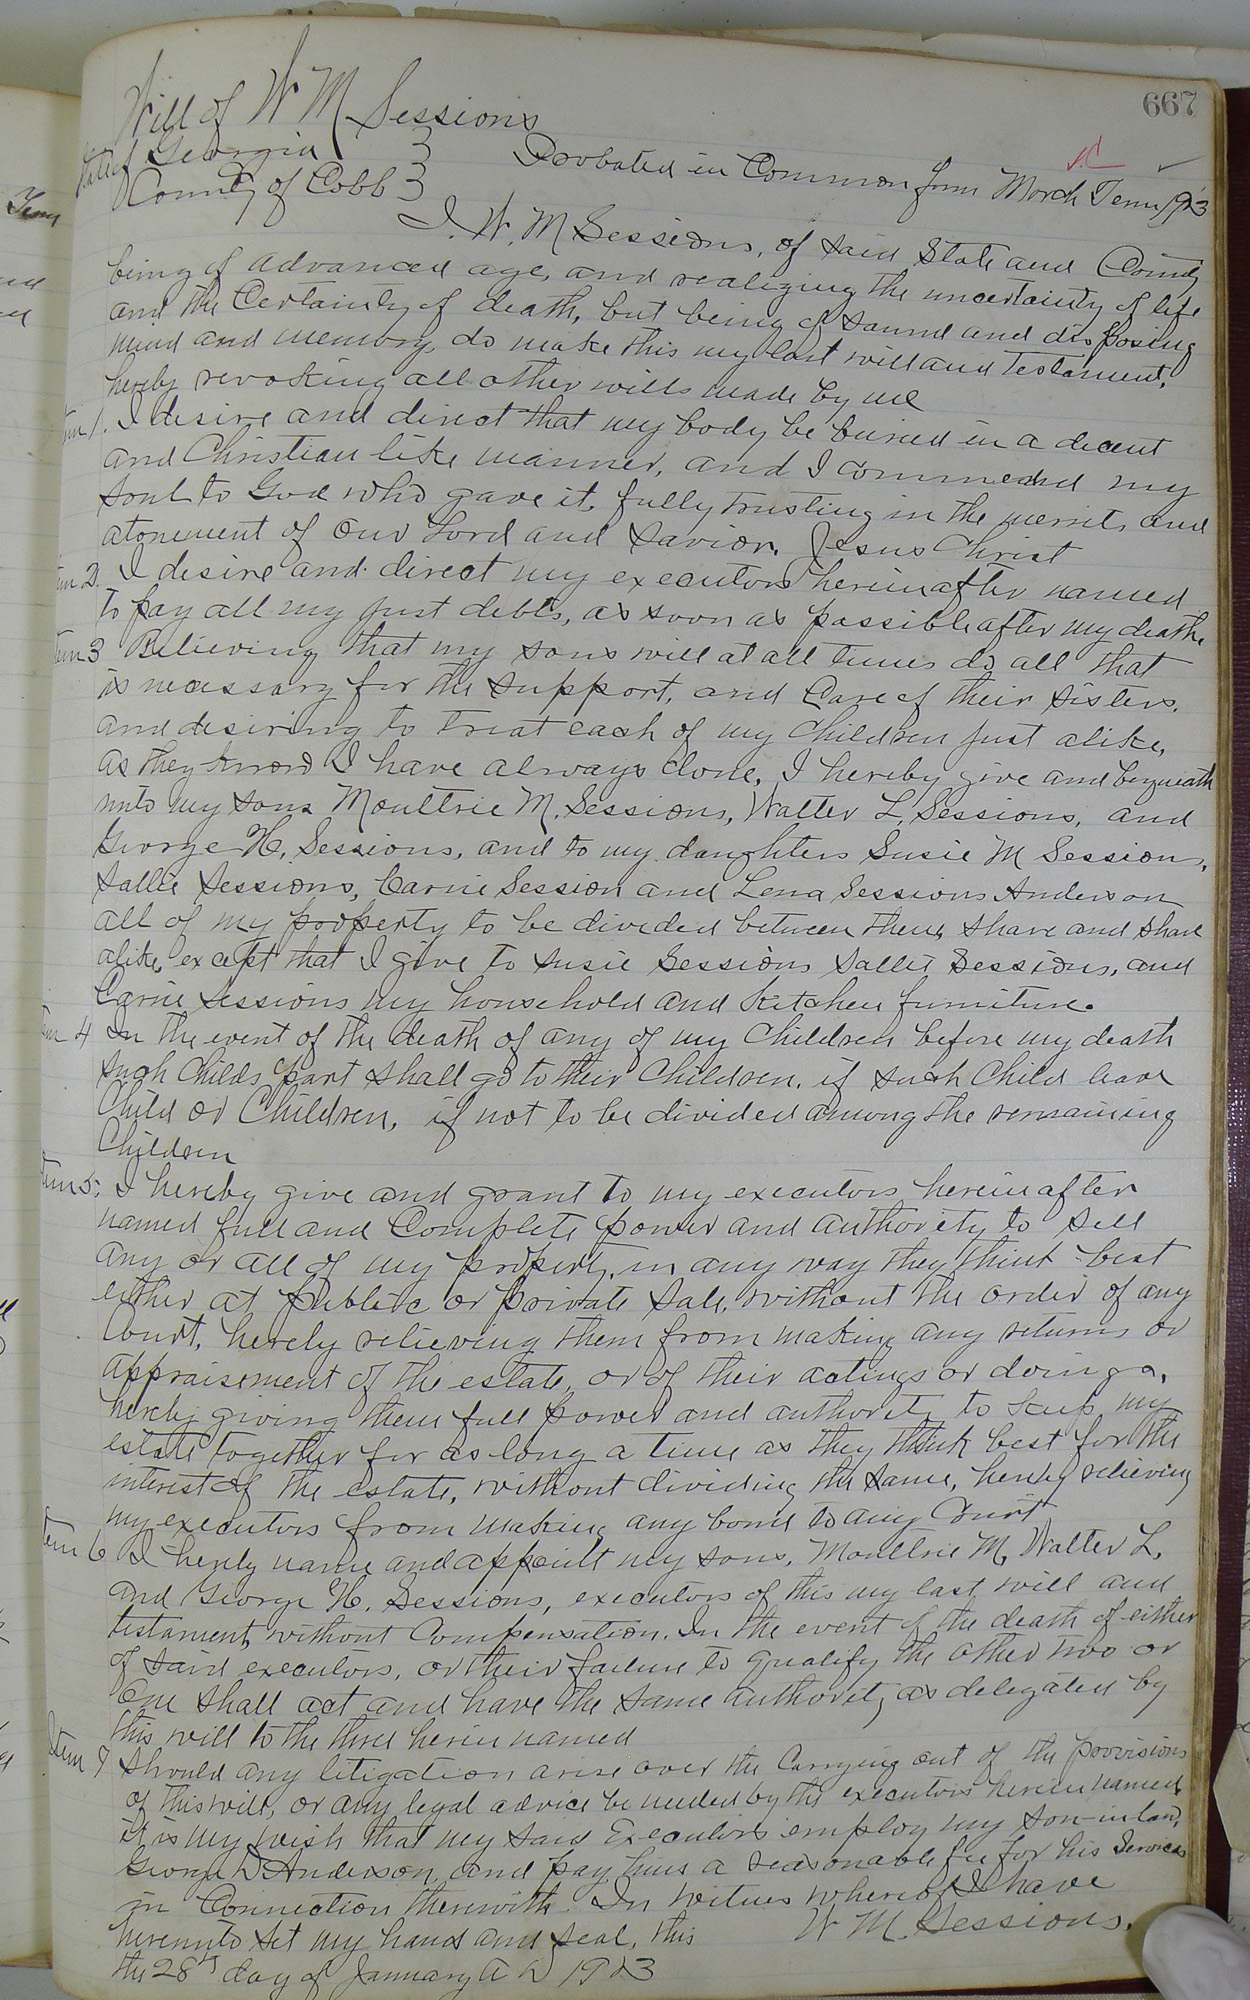 667
Will of W M Sessions
State of Georgia
County of Cobb
Probated in Common form March Term 1923
I. W. M Sessions, of said State and County
being of advanced age, and realizing the uncertainty of life
and the Certainty of death, but being of sound and disposing
mind and memory, do make this my last will and testament,
hereby revoking all other wills made by me
Item 1. I desire and direct that my body be buried in a decent
and Christian like manner, and I commend my
soul to God who gave it, fully trusting in the merits and
atonement of our Lord and Savior, Jesus Christ
Item 2. I desire and direct my executors hereinafter named
to pay all my just debts, as soon as possible after my death
Item 3 Believing that my sons will at all times do all that
is necessary for the support, and Care of their sisters,
and desiring to treat each of my Children just alike,
as they know I have always done, I hereby give and bequeath
unto my sons Moultrie M. Sessions, Walter L. Sessions, and
George H. Sessions, and to my daughters Susie M Sessions,
Sallie Sessions, Carrie Session and Lena Sessions Anderson
all of my property to be divided between them, share and share
alike, except that I give to Susie Sessions Sallie Sessions, and
Carrie Sessions my household and kitchen furniture.
Item 4 In the event of the death of any of my Children before my death
such Childs part shall go to their Children, if such Child leave
Child or Children, if not to be divided among the remaining
Children
Item 5. I hereby give and grant to my executors hereinafter
named full and Complete power and authority to sell
any or all of my property, in any way they think best
either at public or private sale, without the order of any
Court, hereby relieving them from making any returns or
appraisement of the estate, or of their actings or doings,
hereby giving them full power and authority to keep my
estate together for as long a time as they think best for the
interest of the estate, without dividing the same, hereby relieving
my executors from making any bond to any Court
Item 6 I hereby name and appoint my sons, Moultrie M, Walter L.
and George H. Sessions, executors of this my last will and
testament, without Compensation. In the event of the death of either
of said executors, or their failure to qualify the other two or
one shall act and have the same authority as delegated by
this will to the three herein named
Item 7 Should any litigation arise over the Carrying out of the provisions
of this will, or any legal advice be needed by the executors herein named,
it is my wish that my said Executors employ my son-in law,
George D Anderson, and pay him a reasonable fee for his Services
in Connection therewith. In witness whereof I have
hereunto set my hand and seal, this
W M. Sessions.
the 28th day of January A D 1923